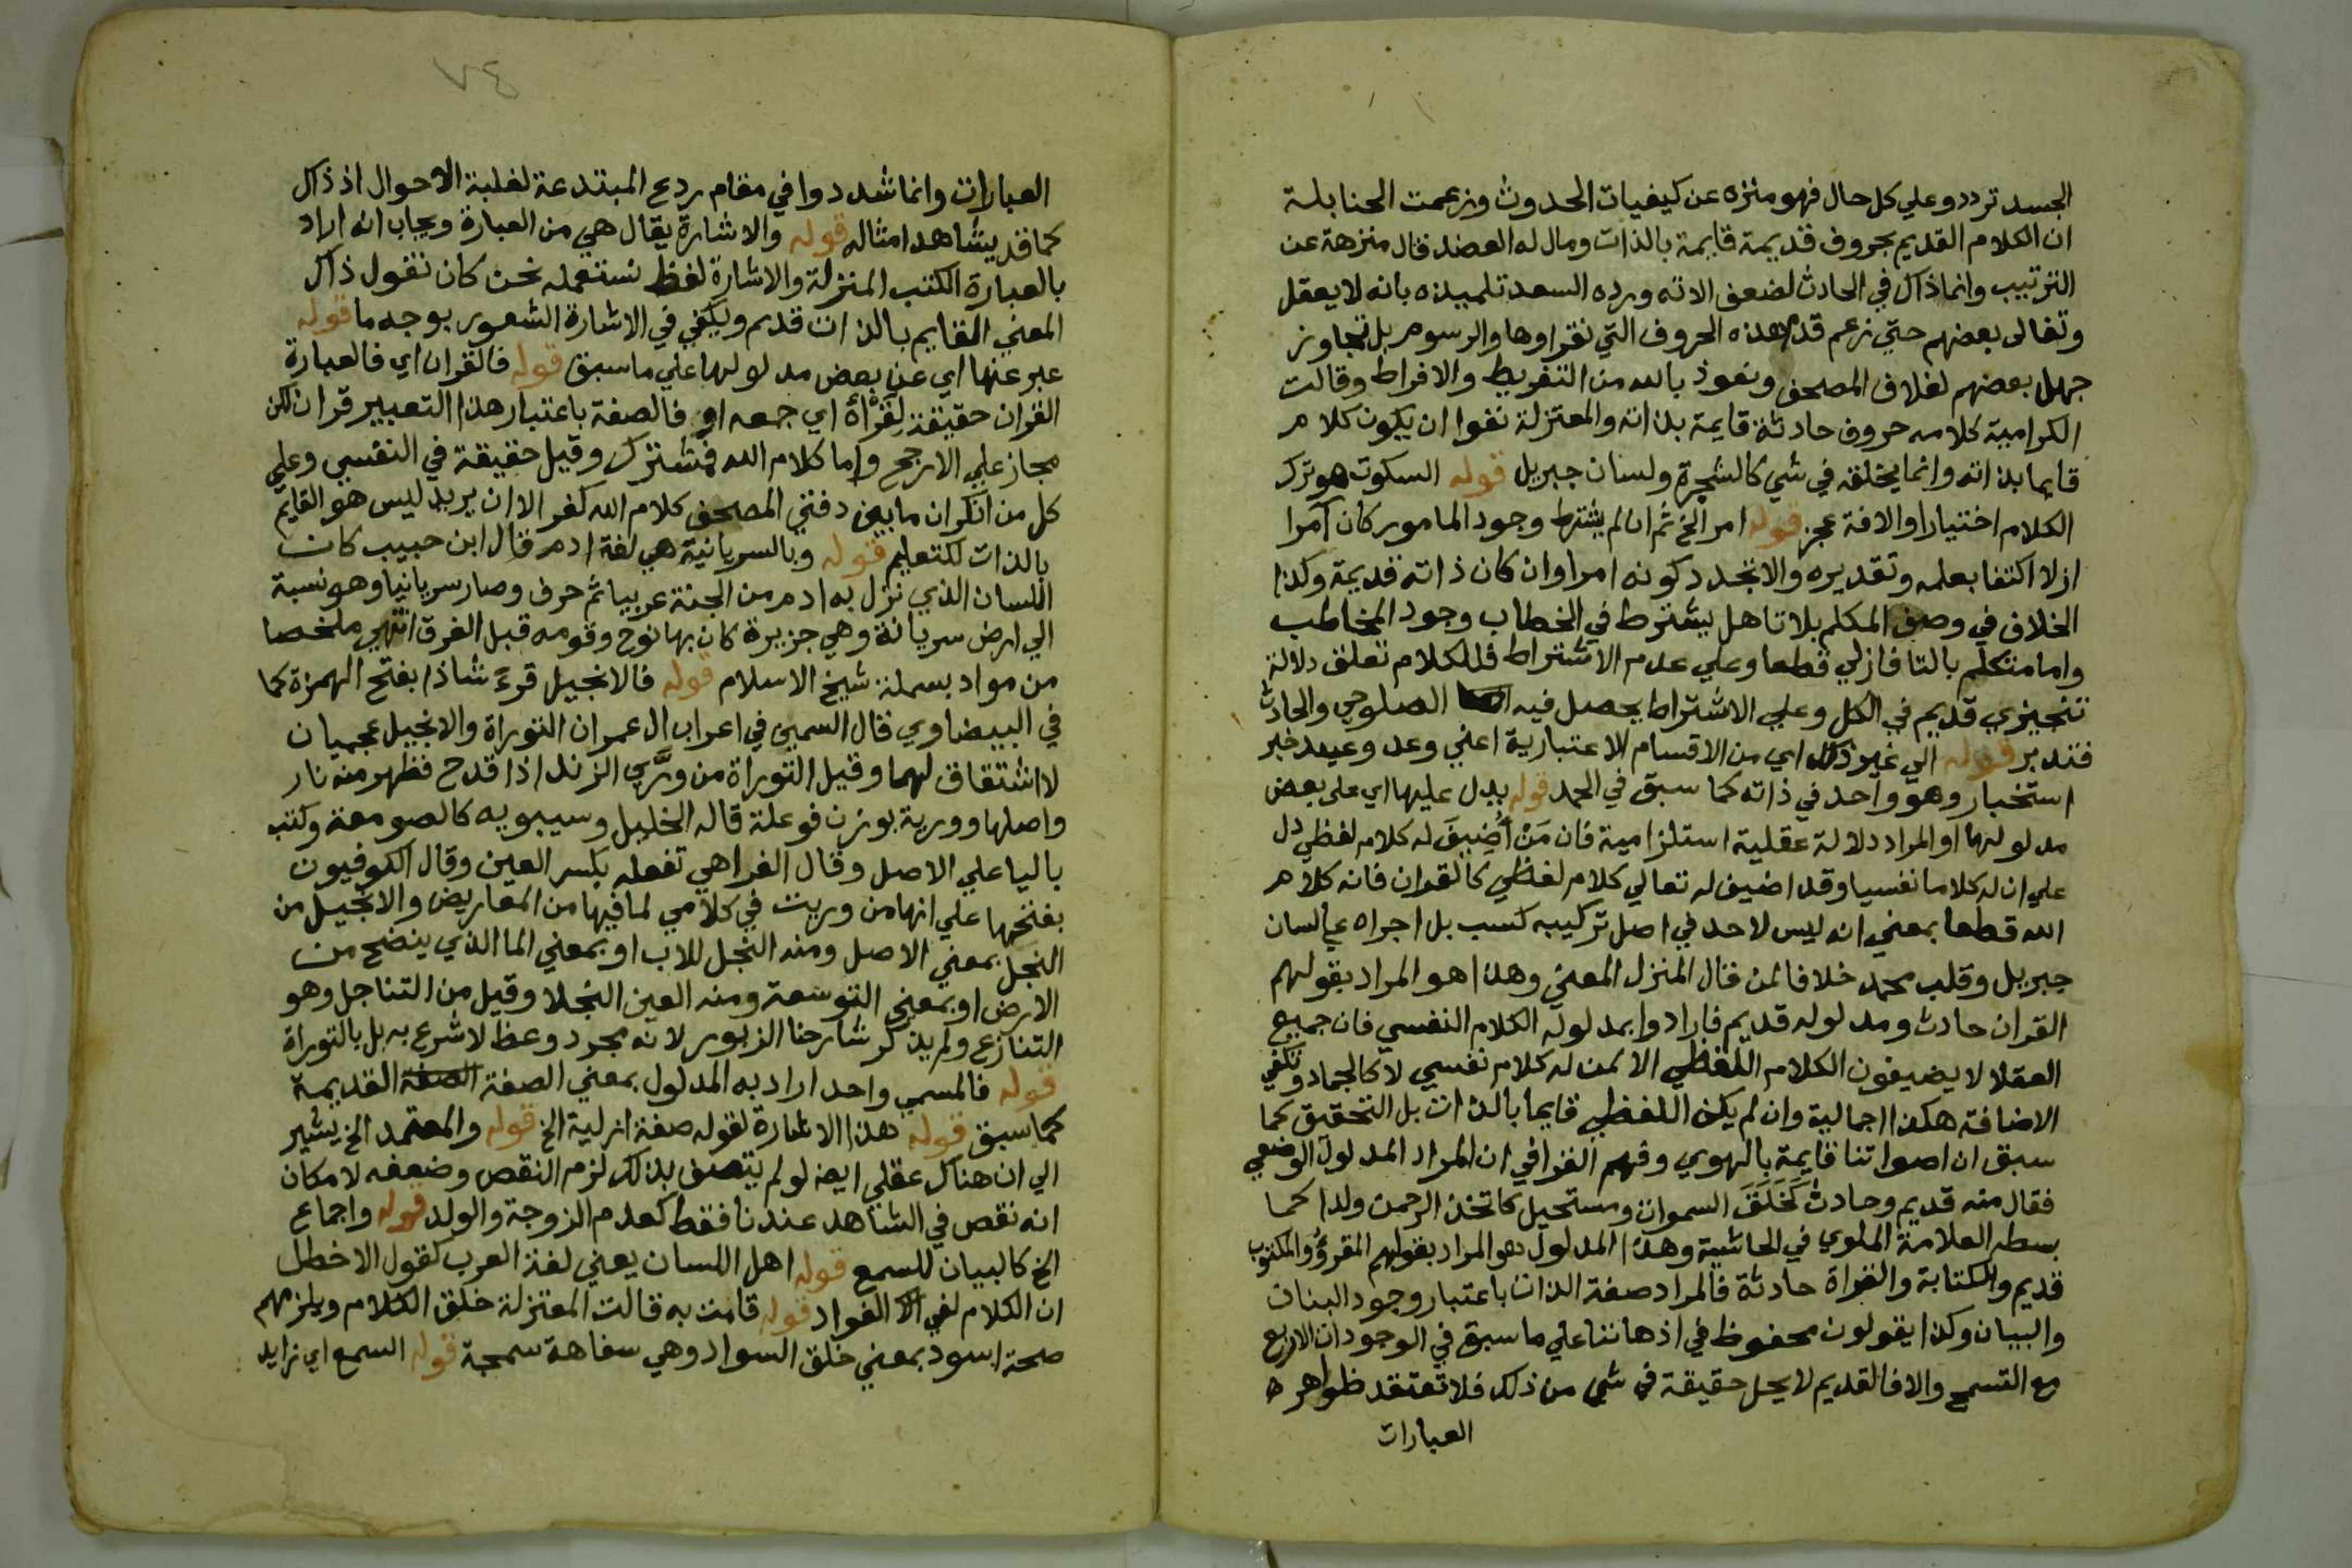 الجسد تردد وعلي كل حال فهو منزه عن كيفيات الحدوث وزعمت الحنابلة
ان الكلام القديم بحروف قديمة قايمة بالذات ومال له العضد قال منزهة عن
الترتيب وانما ذاك في الحادث لضعف الاته ورده السعد تلميذه بانه لا يعقل
وتغالى بعضهم حتي زعم قدم هذه الحروف التي نقراوها والرسوم بل تجاوز
جهل بعضهم لغلاف المصحف ونعوذ بالله من التفريط والافراط وقالت
الكرامية كلامه حروف حادثة قايمة بذاته والمعتزلة نفوا ان يكون كلام
قايما بذاته وانما يخلقه في شي كالشجرة ولسان جبريل قوله السكوت هو ترك
الكلام اختيارا والافة عجز قوله امر الخ ثم ان لم يشترط وجود المامور كان آمرا
ازلا اكتفا بعلمه وتقديره والا تجدد كونه امرا وان كان ذاته قديمة وكذا
الخلاف في وصف المكلم بلا تا هل يشترط في الخطاب وجود المخاطب
واما متكلم بالتا فازلي قطعا وعلي عدم الاشتراط فللكلام تعلق دلالة
تنجيزي قديم في الكل وعلي الاشتراط يحصل فيه الصلوحي والحادث
فتدبر قوله الي غير ذلك اي من الاقسام الاعتبارية اعني وعد وعيد خبر
استخبار وهو واحد في ذاته كما سبق في الحمد قوله يدل عليها اي على بعض
مدلولها او المراد دلالة عقلية استلزامية فان مَنْ أُضِيفَ له كلام لفظي دل
علي ان له كلاما نفسيا وقد اضيف له تعالي كلام لفظي كالقران فانه كلام
الله قطعا بمعني انه ليس لاحد في اصل تركيبه كسب بل اجراه علي لسان
جبريل وقلب محمد خلافا لمن قال المنزل المعني وهذا هو المراد بقولهم
القران حادث ومدلوله قديم فارادوا بمدلوله الكلام النفسي فان جميع
العقلا لا يضيفون الكلام اللفظي الا لمن له كلام نفسي لا كالجماد وتكفي
الاضافة هكذا اجمالية وان لم يكن اللفظي قايما بالذات بل التحقيق كما
سبق ان اصواتنا قايمة بالهوي وفهم القرافي ان المراد المدلول الوضعي
فقال منه قديم وحادث كَخَلَقَ السموات ومستحيل كاتخذ الرحمن ولدا كما
بسطه العلامة الملوي في الحاشية وهذا المدلول هو المراد بقولهم المقروُ والمكتوب
قديم والكتابة والقراة حادثة فالمراد صفة الذات باعتبار وجود البنان
والبيان وكذا يقولون محفوظ في اذهاننا علي ما سبق في الوجودات الاربع
مع التسمح والا فالقديم لا يحل حقيقة في شي من ذلك فلا تعتقد ظواهر
العبارات
٧٤
العبارات وانما شددوا في مقام ردع المبتدعة لغلبة الاحوال اذ ذاك
كما قد يشاهد امثاله قوله والاشارة يقال هي من العبارة ويجاب انه اراد
بالعبارة الكتب المنزلة والاشارة لفظ نستعمله نحن كان نقول ذاك
المعني القايم بالذات قديم ويكفي في الاشارة الشعور بوجه ما قوله
عبر عنها اي عن بعض مدلولها علي ما سبق قوله فالقران اي فالعبارة
القران حقيقة لقرأه اي جمعه او فالصفة باعتبار هذا التعبير قران لكن
مجاز علي الارجح واما كلام الله فمشترك وقيل حقيقة في النفسي وعلي
كل من انكر ان ما بين دفتي المصحف كلام الله كفر الا ان يريد ليس هو القايم
بالذات لكتعليم قوله وبالسريانية هي لغة ادم قال ابن حبيب كان
اللسان الذي نزل به ادم من الجنة عربيا ثم حرف وصار سريانيا وهو نسبة
الي ارض سريانة وهي جزيرة كان بها نوح وقومه قبل الغرق انتهي ملخصا
من مواد بسملة شيخ الاسلام قوله فالانجيل قرءَ شاذا بفتح الهمزة كما
في البيضاوي قال السمين في اعراب ال عمران التوراة والانجيل عجميان
لا اشتقاق لهما وقيل التوراة من ورَّي الزند اذا قدح فظهر منه نار
واصلها وورية بوزن فوعلة قاله الخليل وسيبويه كالصومعة وكتب
باليا علي الاصل وقال الفرا هي تفعله بكسر العين وقال الكوفيون
بفتحها علي انها من وريت في كلامي لما فيها من المعاريض والانجيل من
النجل بمعني الاصل ومنه النجل للاب او بمعني الما الذي ينضح من
الارض او بمعني التوسعة ومنه العين النجلا وقيل من التناجل وهو
التنازع ولم يذكر شارحنا الزبور لانه مجرد وعظ لا شرع به بل بالتوراة
قوله فالمسمي واحد اراد به المدلول بمعني الصفة الصفة القديمة
كما سبق قوله هذا الاشارة لقوله صفة ازلية الخ قوله والمعتمد الخ يشير
الي ان هناك عقلي ايضا لو لم يتصف بذلك لزم النقص وضعفه لامكان
انه نقص في الشاهد عندنا فقط كعدم الزوجة والولد قوله واجماع
الخ كالبيان للسمع قوله اهل اللسان يعني لغة العرب كقول الاخطل
ان الكلام لفي الفواد قوله قامت به قالت المعتزلة خلق الكلام ويلزمهم
صحة اسود بمعني خلق السواد وهي سفاهة سمجة قوله السمع اي زايد